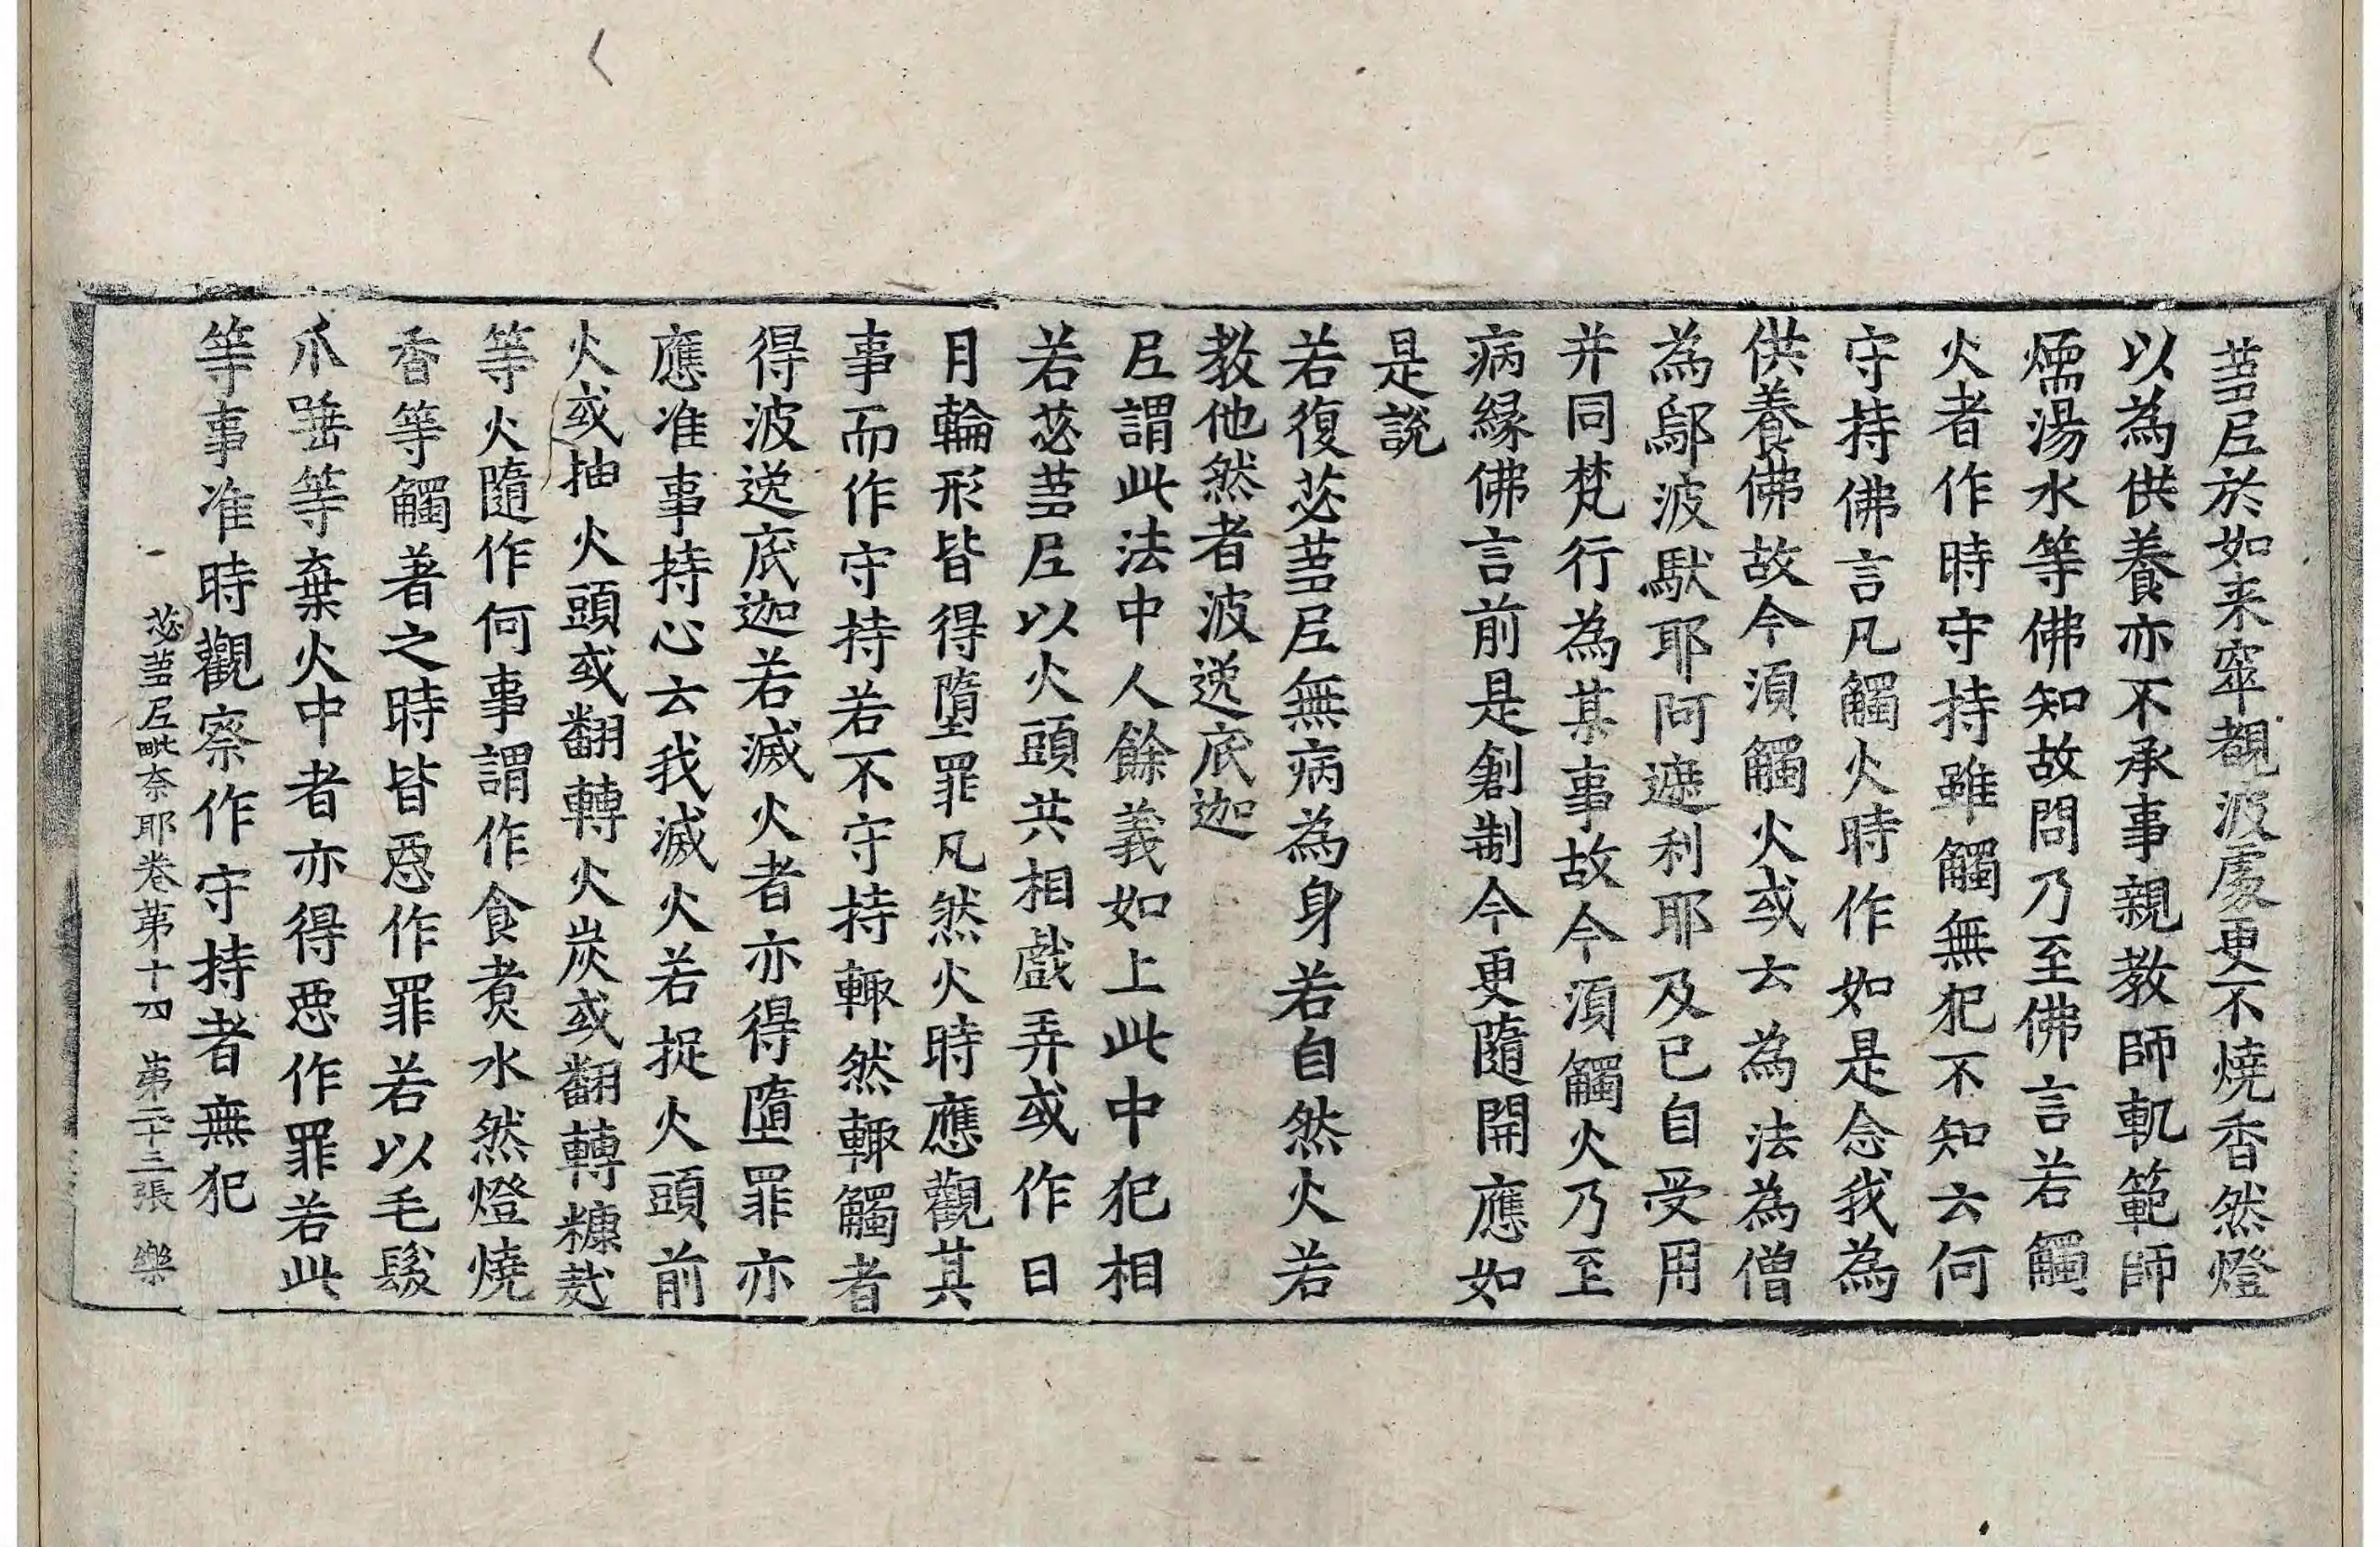 蒭尼於如来窣覩波處更不燒香然燈
以為供養亦不承事親教師軌範師
煗湯水等佛知故問乃至佛言若觸
火者作時守持雖觸無犯不知云何
守持佛言凡觸火時作如是念我為
供養佛故今湏觸火或云為法為僧
為鄔波馱耶阿遮利耶及己自受用
并同梵行為某事故今湏觸火乃至
病緣佛言前是創制今更隨開應如
是說
若復苾蒭尼無病為身若自然火若
教他然者波逸底迦
尼謂此法中人餘義如上此中犯相
若苾蒭尼以火頭共相戲弄或作日
月輪形皆得墮罪凡然火時應觀其
事而作守持若不守持輙然輙觸者
得波逸底迦若滅火者亦得墮罪亦
應准事持心云我滅火若捉火頭前
火或抽火頭或翻轉火炭或翻轉糠䴬
等火隨作何事謂作食煑水然燈燒
香等觸著之時皆惡作罪若以毛髮
爪唾等棄火中者亦得惡作罪若此
等事准時觀察作守持者無犯
苾蒭尼毗奈耶卷第十四 第二十三張 樂